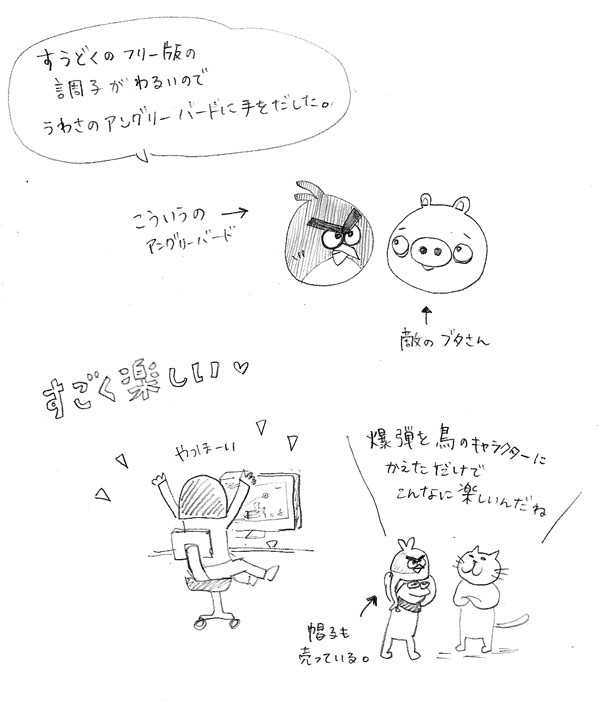 すうどくのフリー版の
調子がわるいので
うわさのアングリーバードに手をだした。
こういうの →
アングリーバード
↑
敵のブタさん
すごく楽しい♡
やっほーい
爆弾を鳥のキャラクターに
かえただけで
こんなに楽しいんだね
帽子も
売っている。